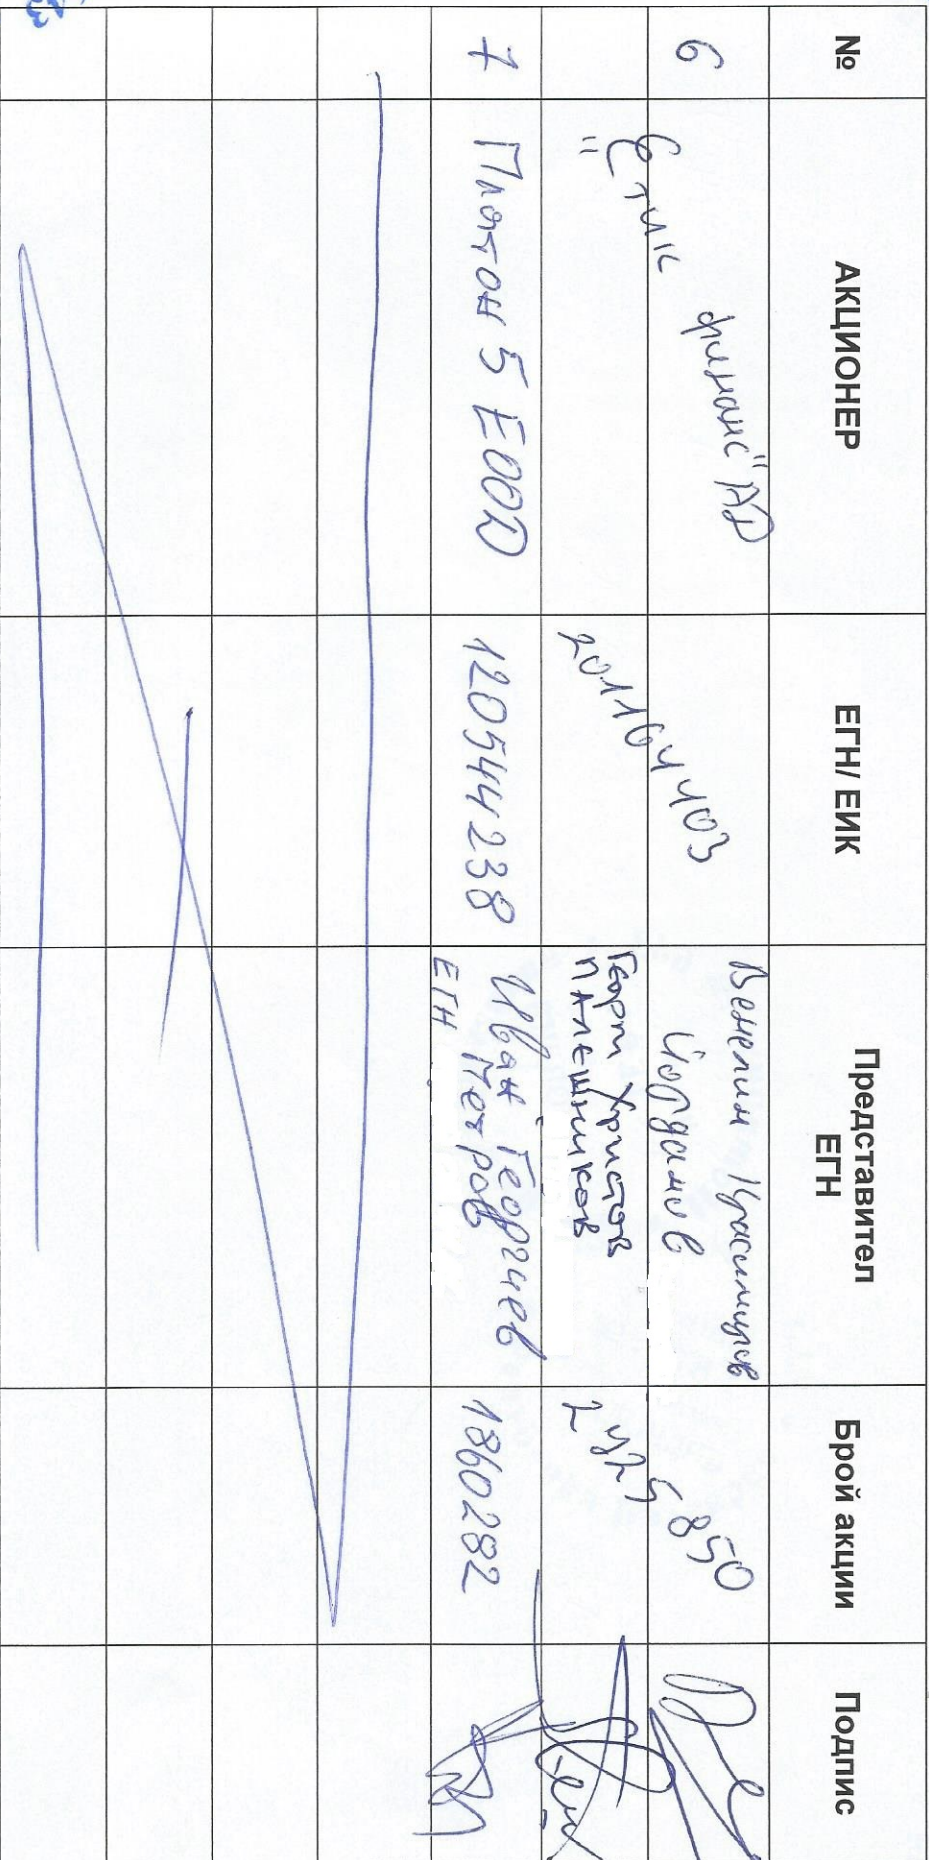 № АКЦИОНЕР ЕГН/ ЕИК Представител ЕГН Брой акции Подпис
6 "Етик финанс" АД 201164403 Венелин Красимиров Йорданов
Георги Христов
ПАЛЕШНИКОВ
7 Платон 5 ЕООД 120544238 Иван Георгиев Петров ЕГН 1860282